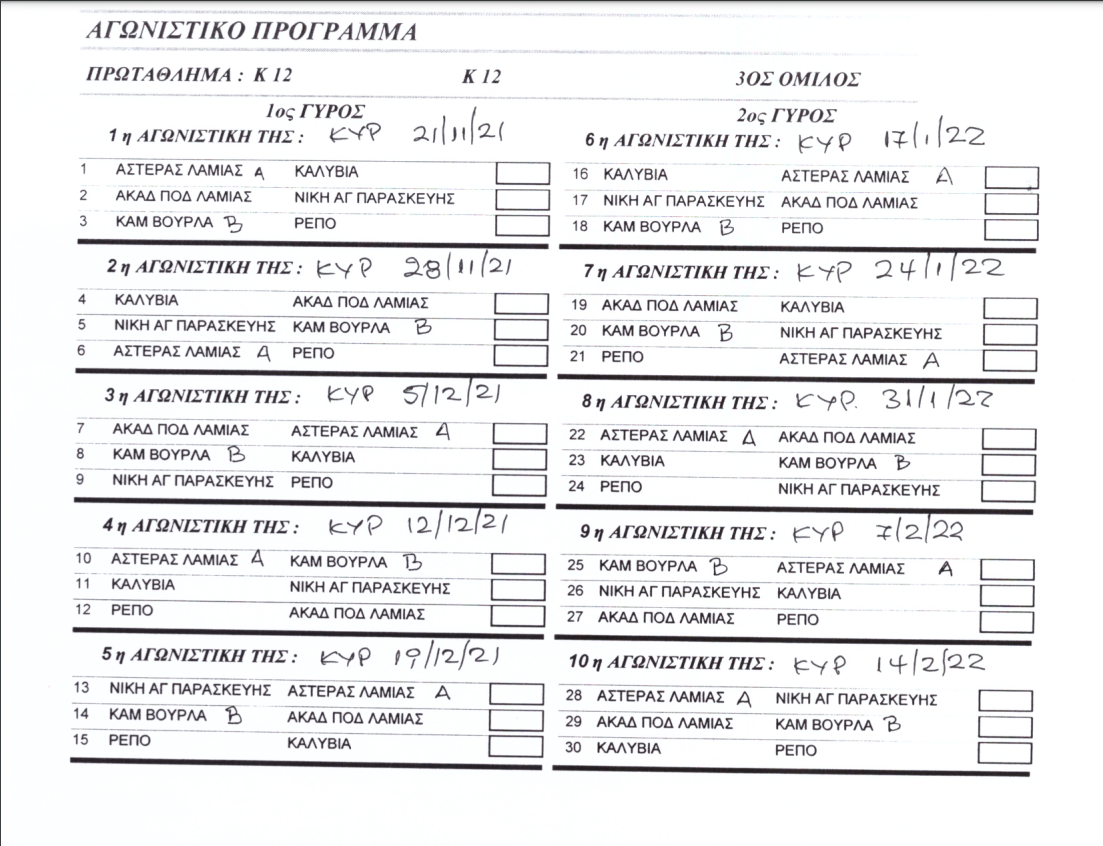 ΑΓΩΝΙΣΤΙΚΟ ΠΡΟΓΡΑΜΜΑ
ΠΡΩΤΑΘΛΗΜΑ : Κ 12 Κ 12 3ΟΣ ΟΜΙΛΟΣ
1ος ΓΥΡΟΣ
1 η ΑΓΩΝΙΣΤΙΚΗ ΤΗΣ : ΚΥΡ 21/11/21
1 ΑΣΤΕΡΑΣ ΛΑΜΙΑΣ Α ΚΑΛΥΒΙΑ
2 ΑΚΑΔ ΠΟΔ ΛΑΜΙΑΣ ΝΙΚΗ ΑΓ ΠΑΡΑΣΚΕΥΗΣ
3 ΚΑΜ ΒΟΥΡΛΑ Β ΡΕΠΟ
2 η ΑΓΩΝΙΣΤΙΚΗ ΤΗΣ : ΚΥΡ 28/11/21
4 ΚΑΛΥΒΙΑ ΑΚΑΔ ΠΟΔ ΛΑΜΙΑΣ
5 ΝΙΚΗ ΑΓ ΠΑΡΑΣΚΕΥΗΣ ΚΑΜ ΒΟΥΡΛΑ Β
6 ΑΣΤΕΡΑΣ ΛΑΜΙΑΣ Α ΡΕΠΟ
3 η ΑΓΩΝΙΣΤΙΚΗ ΤΗΣ : ΚΥΡ 5/12/21
7 ΑΚΑΔ ΠΟΔ ΛΑΜΙΑΣ ΑΣΤΕΡΑΣ ΛΑΜΙΑΣ Α
8 ΚΑΜ ΒΟΥΡΛΑ Β ΚΑΛΥΒΙΑ
9 ΝΙΚΗ ΑΓ ΠΑΡΑΣΚΕΥΗΣ ΡΕΠΟ
4 η ΑΓΩΝΙΣΤΙΚΗ ΤΗΣ : ΚΥΡ 12/12/21
10 ΑΣΤΕΡΑΣ ΛΑΜΙΑΣ Α ΚΑΜ ΒΟΥΡΛΑ Β
11 ΚΑΛΥΒΙΑ ΝΙΚΗ ΑΓ ΠΑΡΑΣΚΕΥΗΣ
12 ΡΕΠΟ ΑΚΑΔ ΠΟΔ ΛΑΜΙΑΣ
5 η ΑΓΩΝΙΣΤΙΚΗ ΤΗΣ : ΚΥΡ 19/12/21
13 ΝΙΚΗ ΑΓ ΠΑΡΑΣΚΕΥΗΣ ΑΣΤΕΡΑΣ ΛΑΜΙΑΣ Α
14 ΚΑΜ ΒΟΥΡΛΑ Β ΑΚΑΔ ΠΟΔ ΛΑΜΙΑΣ
15 ΡΕΠΟ ΚΑΛΥΒΙΑ
2ος ΓΥΡΟΣ
6 η ΑΓΩΝΙΣΤΙΚΗ ΤΗΣ : ΚΥΡ 17/1/22
16 ΚΑΛΥΒΙΑ ΑΣΤΕΡΑΣ ΛΑΜΙΑΣ Α
17 ΝΙΚΗ ΑΓ ΠΑΡΑΣΚΕΥΗΣ ΑΚΑΔ ΠΟΔ ΛΑΜΙΑΣ
18 ΚΑΜ ΒΟΥΡΛΑ Β ΡΕΠΟ
7 η ΑΓΩΝΙΣΤΙΚΗ ΤΗΣ : ΚΥΡ 24/1/22
19 ΑΚΑΔ ΠΟΔ ΛΑΜΙΑΣ ΚΑΛΥΒΙΑ
20 ΚΑΜ ΒΟΥΡΛΑ Β ΝΙΚΗ ΑΓ ΠΑΡΑΣΚΕΥΗΣ
21 ΡΕΠΟ ΑΣΤΕΡΑΣ ΛΑΜΙΑΣ Α
8 η ΑΓΩΝΙΣΤΙΚΗ ΤΗΣ : ΚΥΡ. 31/1/22
22 ΑΣΤΕΡΑΣ ΛΑΜΙΑΣ Α ΑΚΑΔ ΠΟΔ ΛΑΜΙΑΣ
23 ΚΑΛΥΒΙΑ ΚΑΜ ΒΟΥΡΛΑ Β
24 ΡΕΠΟ ΝΙΚΗ ΑΓ ΠΑΡΑΣΚΕΥΗΣ
9 η ΑΓΩΝΙΣΤΙΚΗ ΤΗΣ : ΚΥΡ 7/2/22
25 ΚΑΜ ΒΟΥΡΛΑ Β ΑΣΤΕΡΑΣ ΛΑΜΙΑΣ Α
26 ΝΙΚΗ ΑΓ ΠΑΡΑΣΚΕΥΗΣ ΚΑΛΥΒΙΑ
27 ΑΚΑΔ ΠΟΔ ΛΑΜΙΑΣ ΡΕΠΟ
10 η ΑΓΩΝΙΣΤΙΚΗ ΤΗΣ : ΚΥΡ 14/2/22
28 ΑΣΤΕΡΑΣ ΛΑΜΙΑΣ Α ΝΙΚΗ ΑΓ ΠΑΡΑΣΚΕΥΗΣ
29 ΑΚΑΔ ΠΟΔ ΛΑΜΙΑΣ ΚΑΜ ΒΟΥΡΛΑ Β
30 ΚΑΛΥΒΙΑ ΡΕΠΟ